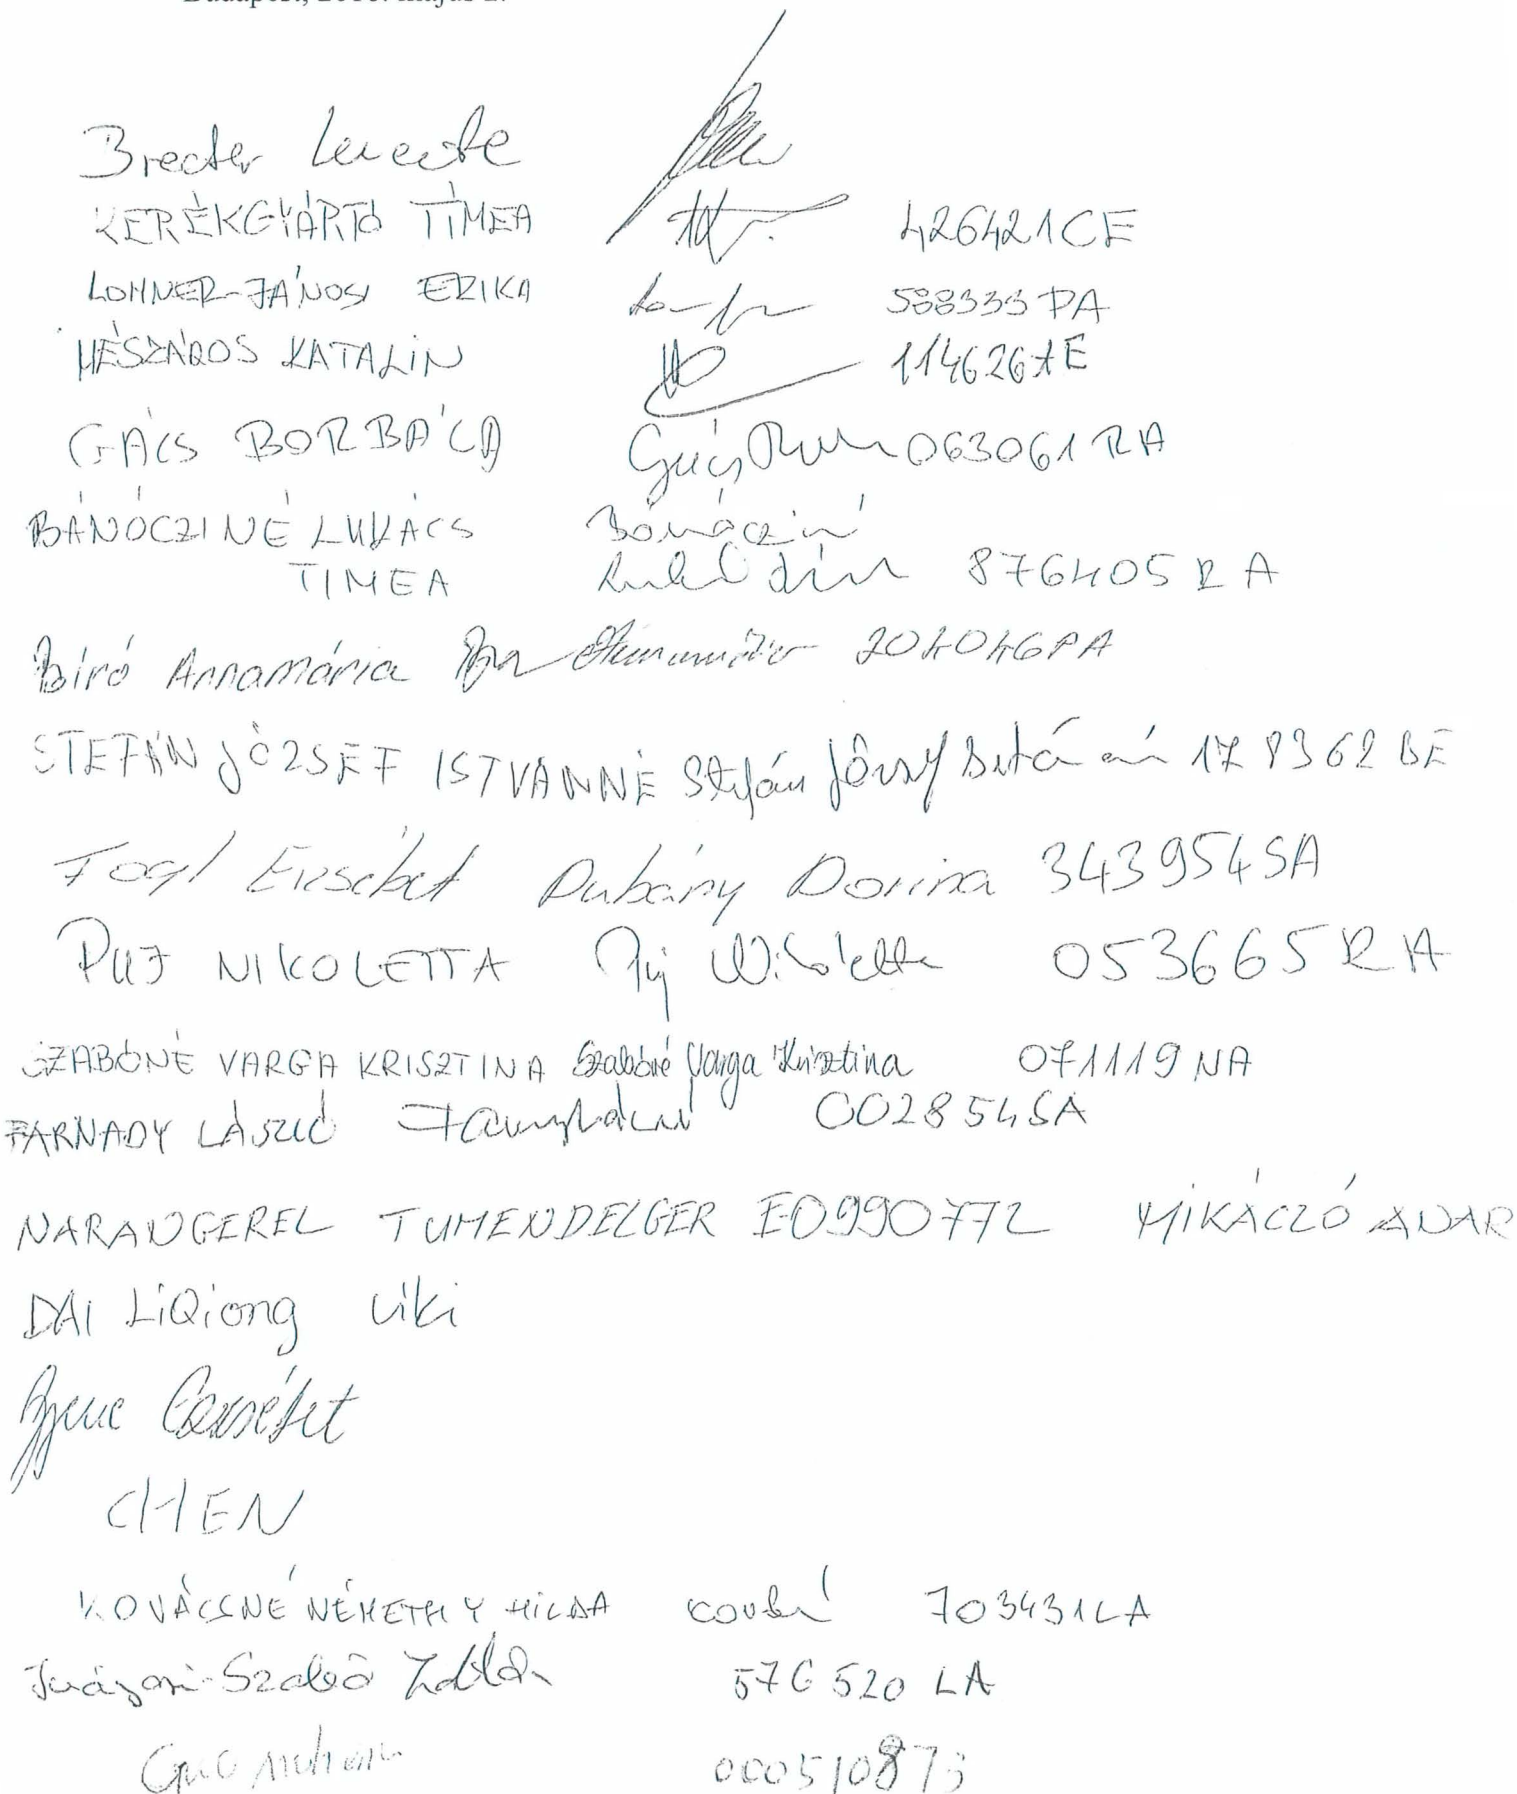 KERÉKGYÁRTÓ TÍMEA 426421CE
LOHNER-JÁNOSI ERIKA 588333 PA
MÉSZÁROS KATALIN 114626AE
GÁCS BORBÁLA Gács 063061 RA
BÁNÓCZINÉ LUKÁCS
TIMEA 876405 RA
Bíró Annamária 204046PA
STEFÁN JÓZSEF ISTVÁNNÉ Stefán József 178362 BE
Fogl Erzsébet Dubány Dorina 343954SA
PUJ NIKOLETTA Puj Nikoletta 053665RA
SZABÓNÉ VARGA KRISZTINA Szabóné Varga Krisztina 071119 NA
FARNADY LÁSZLÓ 002854SA
NARANGEREL TUMENDELGER E0990772 MIKÁCZÓ ANAR
DAI LiQiong Viki
Erzsébet
CHEN
KOVÁCSNÉ NÉMETHY HILDA 703431LA
Szabó Zoltán 576520 LA